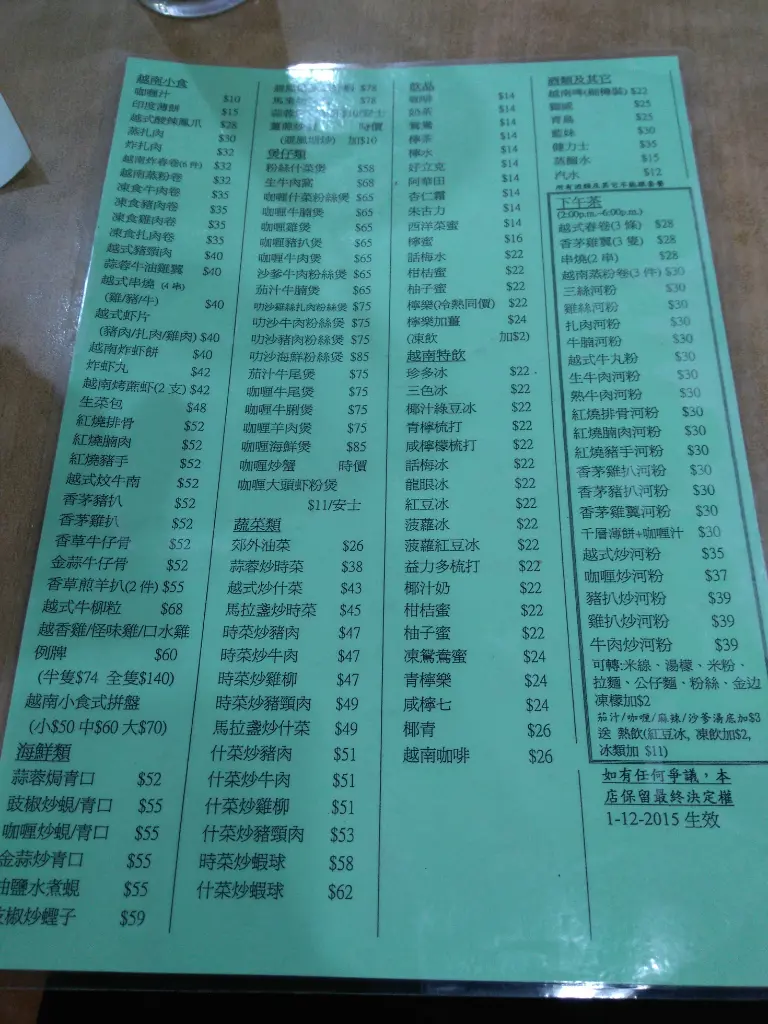 越南小食
咖喱汁 $10
印度薄餅 $15
越式酸辣鳳爪 $28
蒸扎肉 $30
炸扎肉 $32
越南炸春卷(6件) $32
越南蒸粉卷 $32
凍食牛肉卷 $35
凍食豬肉卷 $35
凍食雞肉卷 $35
凍食扎肉卷 $35
越式豬頸肉 $40
蒜蓉牛油雞翼 $40
越式串燒 (4串)
(雞/豬/牛) $40
越式虾片
(豬肉/扎肉/雞肉) $40
越南炸虾餅 $40
炸虾丸 $42
越南烤蔗虾(2支) $42
生菜包 $48
紅燒排骨 $52
紅燒腩肉 $52
紅燒豬手 $52
越式炆牛南 $52
香茅豬扒 $52
香茅雞扒 $52
香草牛仔骨 $52
金蒜牛仔骨 $52
香草煎羊扒(2件) $55
越式牛柳粒 $68
越香雞/怪味雞/口水雞
例牌 $60
(半隻$74 全隻$140)
越南小食式拼盤
(小$50 中$60 大$70)
海鮮類
蒜蓉焗青口 $52
豉椒炒蜆/青口 $55
咖喱炒蜆/青口 $55
金蒜炒青口 $55
油鹽水煮蜆 $55
豉椒炒蟶子 $59
$78
$78
時價
加$10
煲仔類
粉絲什菜煲 $58
生牛肉窩 $68
咖喱什菜粉絲煲 $65
咖喱牛腩煲 $65
咖喱雞煲 $65
咖喱豬扒煲 $65
咖喱牛肉煲 $65
沙爹牛肉粉絲煲 $65
茄汁牛腩煲 $65
叻沙雞絲扎肉粉絲煲 $75
叻沙牛肉粉絲煲 $75
叻沙豬肉粉絲煲 $75
叻沙海鮮粉絲煲 $85
茄汁牛尾煲 $75
咖喱牛尾煲 $75
咖喱牛脷煲 $75
咖喱羊肉煲 $75
咖喱海鮮煲 $85
咖喱炒蟹 時價
咖喱大頭虾粉煲
$11/安士
蔬菜類
郊外油菜 $26
蒜蓉炒時菜 $38
越式炒什菜 $43
馬拉盞炒時菜 $45
時菜炒豬肉 $47
時菜炒牛肉 $47
時菜炒雞柳 $47
時菜炒豬頸肉 $49
馬拉盞炒什菜 $49
什菜炒豬肉 $51
什菜炒牛肉 $51
什菜炒雞柳 $51
什菜炒豬頸肉 $53
時菜炒蝦球 $58
什菜炒蝦球 $62
飲品
咖啡 $14
奶茶 $14
鴛鴦 $14
檸茶 $14
檸水 $14
好立克 $14
阿華田 $14
杏仁霜 $14
朱古力 $14
西洋菜蜜 $14
檸蜜 $16
話梅水 $22
柑桔蜜 $22
柚子蜜 $22
檸樂(冷熱同價) $22
檸樂加薑 $24
(凍飲 加$2)
越南特飲
珍多冰 $22
三色冰 $22
椰汁綠豆冰 $22
青檸梳打 $22
咸檸檬梳打 $22
話梅冰 $22
龍眼冰 $22
紅豆冰 $22
菠蘿冰 $22
菠蘿紅豆冰 $22
益力多梳打 $22
椰汁奶 $22
柑桔蜜 $22
柚子蜜 $22
凍鴛鴦蜜 $24
青檸樂 $24
咸檸七 $24
椰青 $26
越南咖啡 $26
酒類及其它
越南啤(細樽裝) $22
$25
青島 $25
藍妹 $30
健力士 $35
蒸餾水 $15
汽水 $12
下午茶
(2:00p.m.-6:00p.m.)
越式春卷(3條) $28
香茅雞翼(3隻) $28
串燒(2串) $28
越南蒸粉卷(3件) $30
三絲河粉 $30
雞絲河粉 $30
扎肉河粉 $30
牛腩河粉 $30
越式牛丸粉 $30
生牛肉河粉 $30
熟牛肉河粉 $30
紅燒排骨河粉 $30
紅燒腩肉河粉 $30
紅燒豬手河粉 $30
香茅雞扒河粉 $30
香茅豬扒河粉 $30
香茅雞翼河粉 $30
千層薄餅+咖喱汁 $30
越式炒河粉 $35
咖喱炒河粉 $37
豬扒炒河粉 $39
雞扒炒河粉 $39
牛肉炒河粉 $39
可轉:米線、湯檬、米粉、
拉麵、公仔麵、粉絲、金边
凍檬加$2
茄汁/咖喱/麻辣/沙爹湯底加$3
送 熱飲(紅豆冰,凍飲加$2,
冰類加 $11)
如有任何爭議，本
店保留最終決定權
1-12-2015 生效